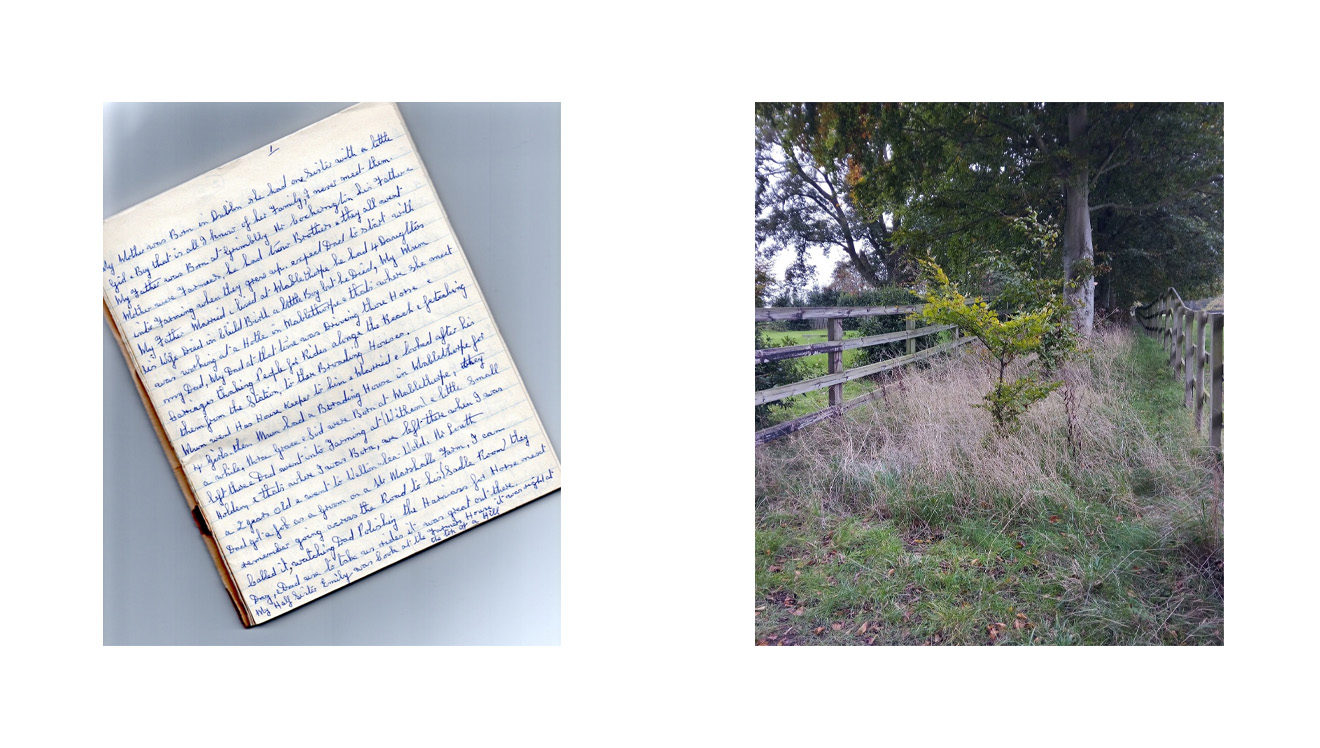 1
My Mother was Born in Dublin she had one Sister with a little
Girl & Boy that is all I know of her Family, I never meet them.
My Father was Born at Grimblby Nr Cockerington his Father &
Mother were Farmers, he had Brothers & they all went
into Farming when they grew up. expect Dad to start with
My Father Married & lived at Mablethorpe he had 4 Daughters
his Wife Died in Child Birth a little Boy but he Died, My Mum
was working at a Hotle in Mablethorpe & that's where she meet
my Dad, My Dad at that time was Driving those Horse &
Carrages thaking People for Rides along the Beach & fetching
them from the Station, to thair Boarding Houses.
Mum went Has House Keeper to him & Married & looked after his
4 Girls then Mum had a Boarding House in Mablethorpe for
a while, there Grace & Sid were Born at Mablethorpe, they
left there & Dad went into Farming at Withern & little Small
Holden, & thats where I was Born, we left there when I was
a 2 years old & went to Welton-Lea-Wold. Nr Louth
Dad got a job as a Groom on a Mr Marshalls Farm, I can
remember going across the Road to his (Sadle Room) they
called it, watching Dad Polishing the Harness for Horse meet
Day, & Dad use to take us rides it was great out there
My Half Sister Emily was Cook at the Farmer House it was right at
the Top of a Hill